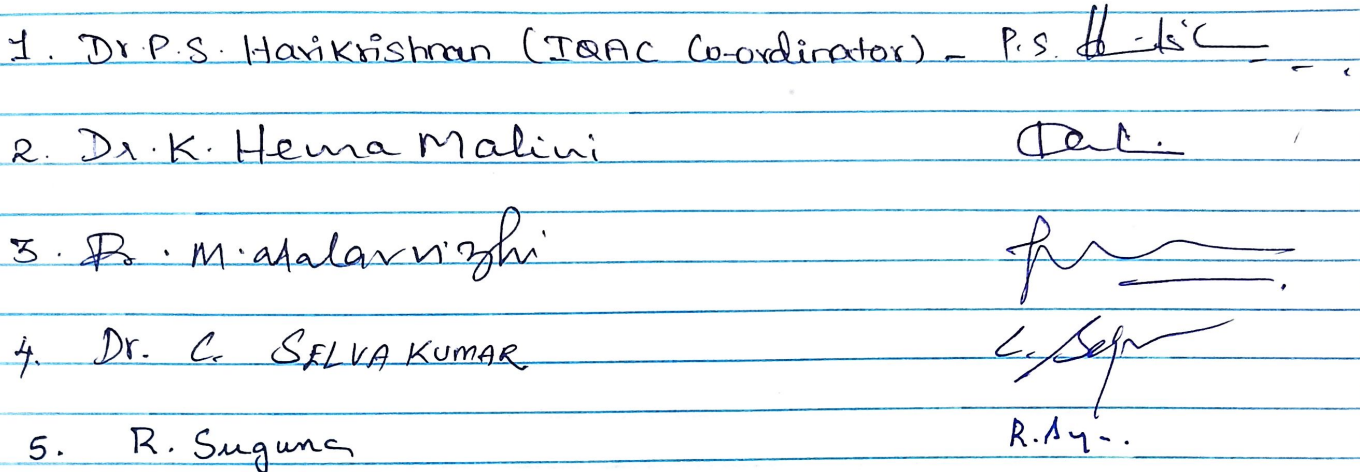 1. Dr. P.S. Harikrishnan (IQAC Co-ordinator) - P.S.
2. Dr. K. Hema Malini
3. M. Malarvizhi
4. Dr. C. SELVA KUMAR C.
5. R. Suguna R.